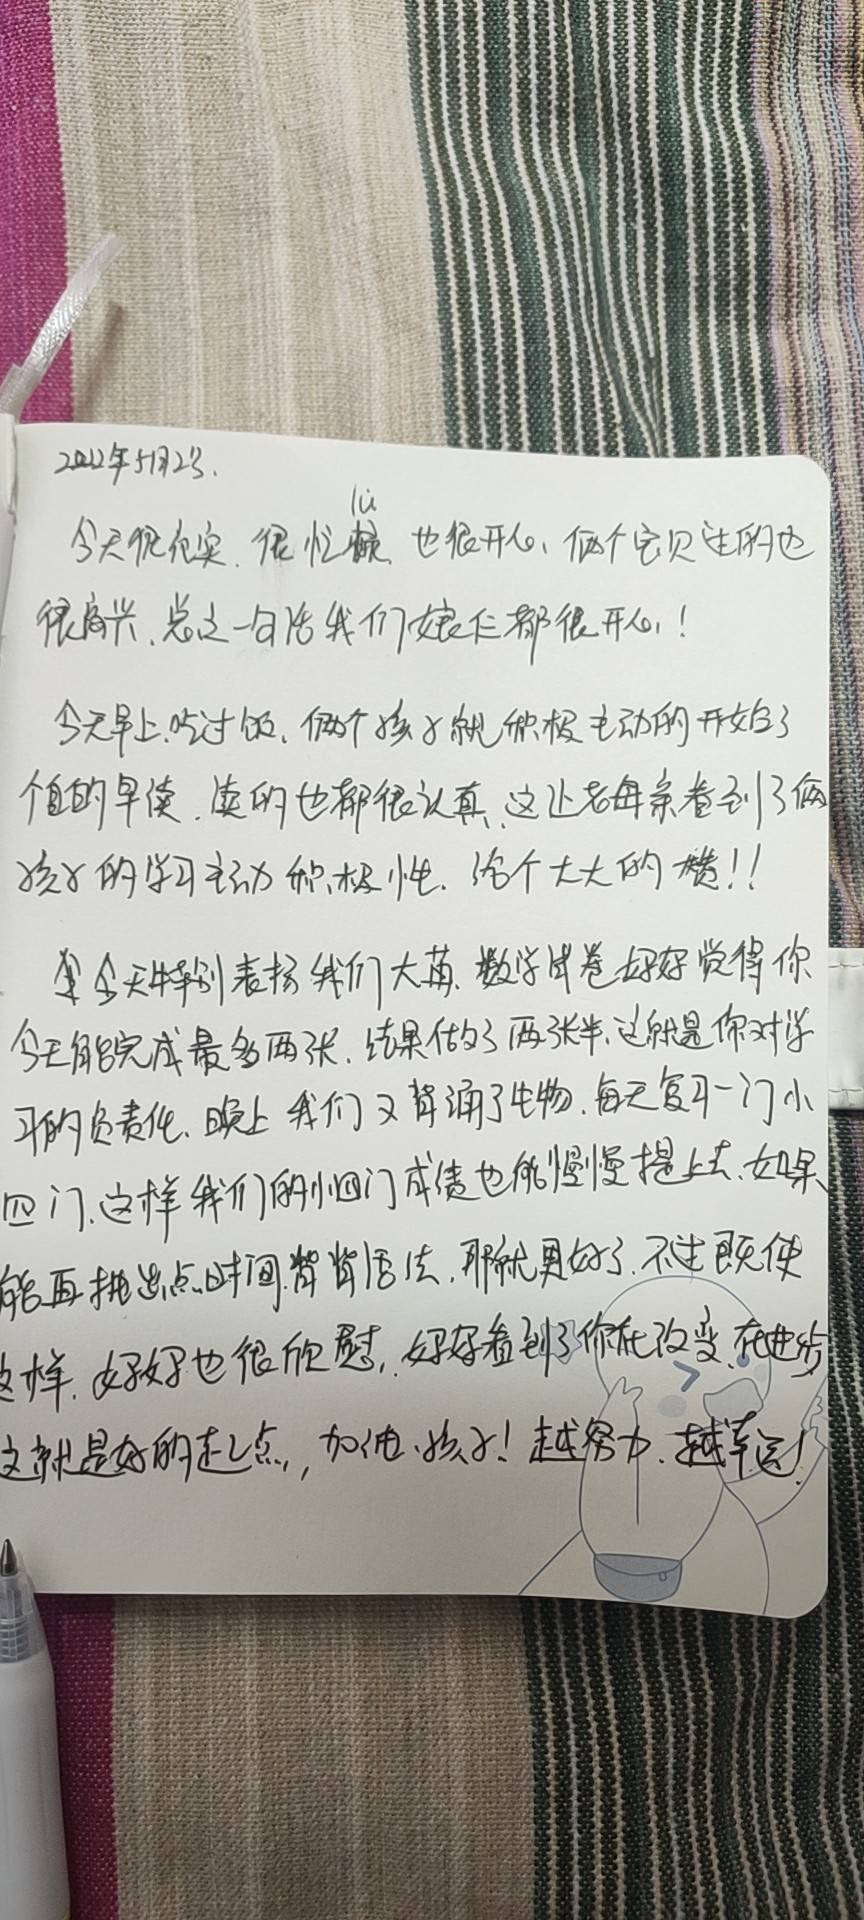 2022年5月2号.
lù
今天很充实.很忙碌.也很开心,俩个宝贝过的也
很高兴.总之一句话我们娘仨都很开心!
今天早上吃过饭.俩个孩子就积极主动的开始了
个自的早读.读的也都很认真.这让老母亲看到了俩
孩子的学习主动积极性.给个大大的赞!!
今天特别表扬我们大苒.数学试卷妈妈觉得你
今天能完成最多两张.结果做了两张半.这就是你对学
习的负责任.晚上我们又背诵了生物.每天复习一门小
四门.这样我们的小四门成绩也能慢慢提上去.如果
能再挑出点时间背背语法.那就更好了.不过既使
这样.妈妈也很欣慰,妈妈看到了你在改变.在进步
这就是好的起点,加油.孩子!越努力.越幸运!